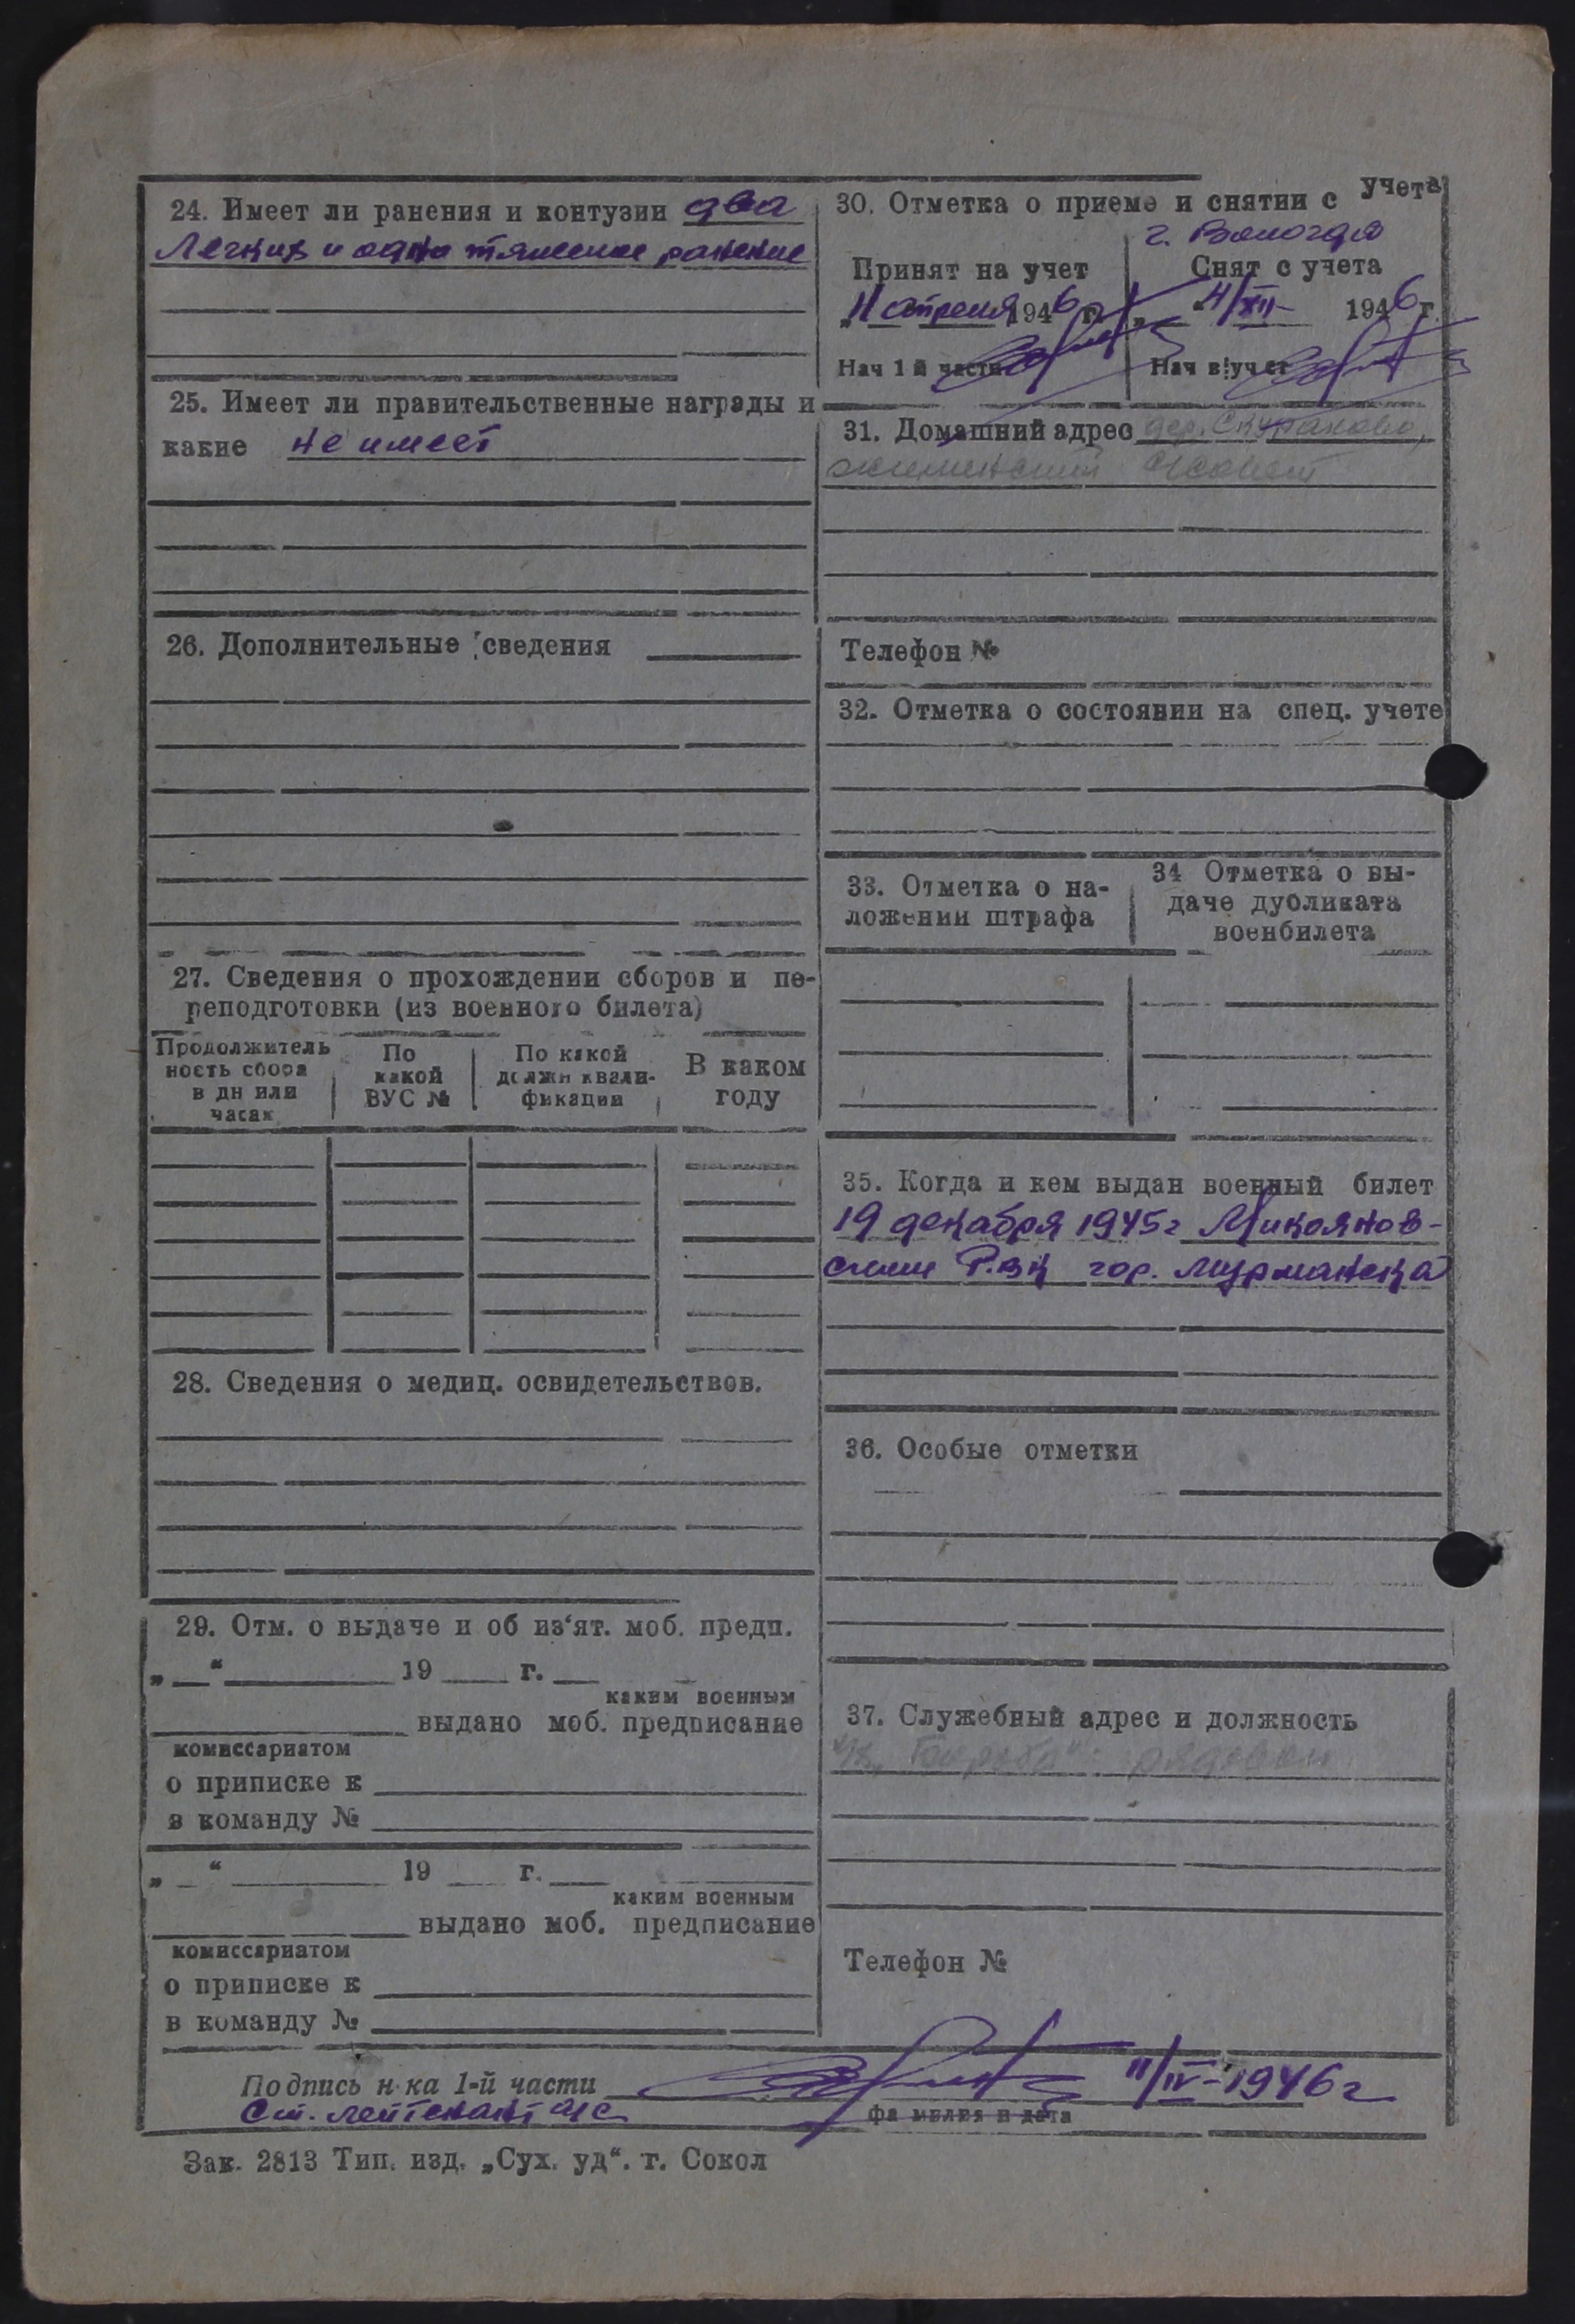 24. Имеет ли ранения и контузии два
Легких и одно тяжелое ранение
25. Имеет ли правительственные награды и
какие не имеет
26. Дополнительные сведения
27. Сведения о прохождении сборов и пе-
реподготовки (из военного билета)
Продолжитель
ность сбора
в дн или
часах
По
какой
ВУС №
По какой
должн квали-
фикации
В каком
году
28. Сведения о медиц. освидетельствов.
29. Отм. о выдаче и об из‘ят. моб. предп.
„ “ 19 г.
каким военным
выдано моб. предписание
комиссариатом
о приписке к
в команду №
„ “ 19 г.
каким военным
выдано моб. предписание
комиссариатом
о приписке к
в команду №
30. Отметка о приеме и снятии с учета
г. Вологда
Принят на учет
„11 апреля 1946 г.
Нач 1 й части
Снят с учета
„ “ 4/XII 1946 г.
Нач в учет
31. Домашний адрес дер. Скураково,
Телефон №
32. Отметка о состоянии на спец. учете
33. Отметка о на-
ложении штрафа
34 Отметка о вы-
даче дубликата
военбилета
35. Когда и кем выдан военный билет
19 декабря 1945 г Микоянов-
ским Р.В.К гор. Мурманска
36. Особые отметки
37. Служебный адрес и должность
рядовой
Телефон №
Подпись н-ка 1-й части 11/IV-1946 г
Ст. лейтенант а/с
фамилия и дата
Зак. 2813 Тип. изд. „Сух. уд“. г. Сокол